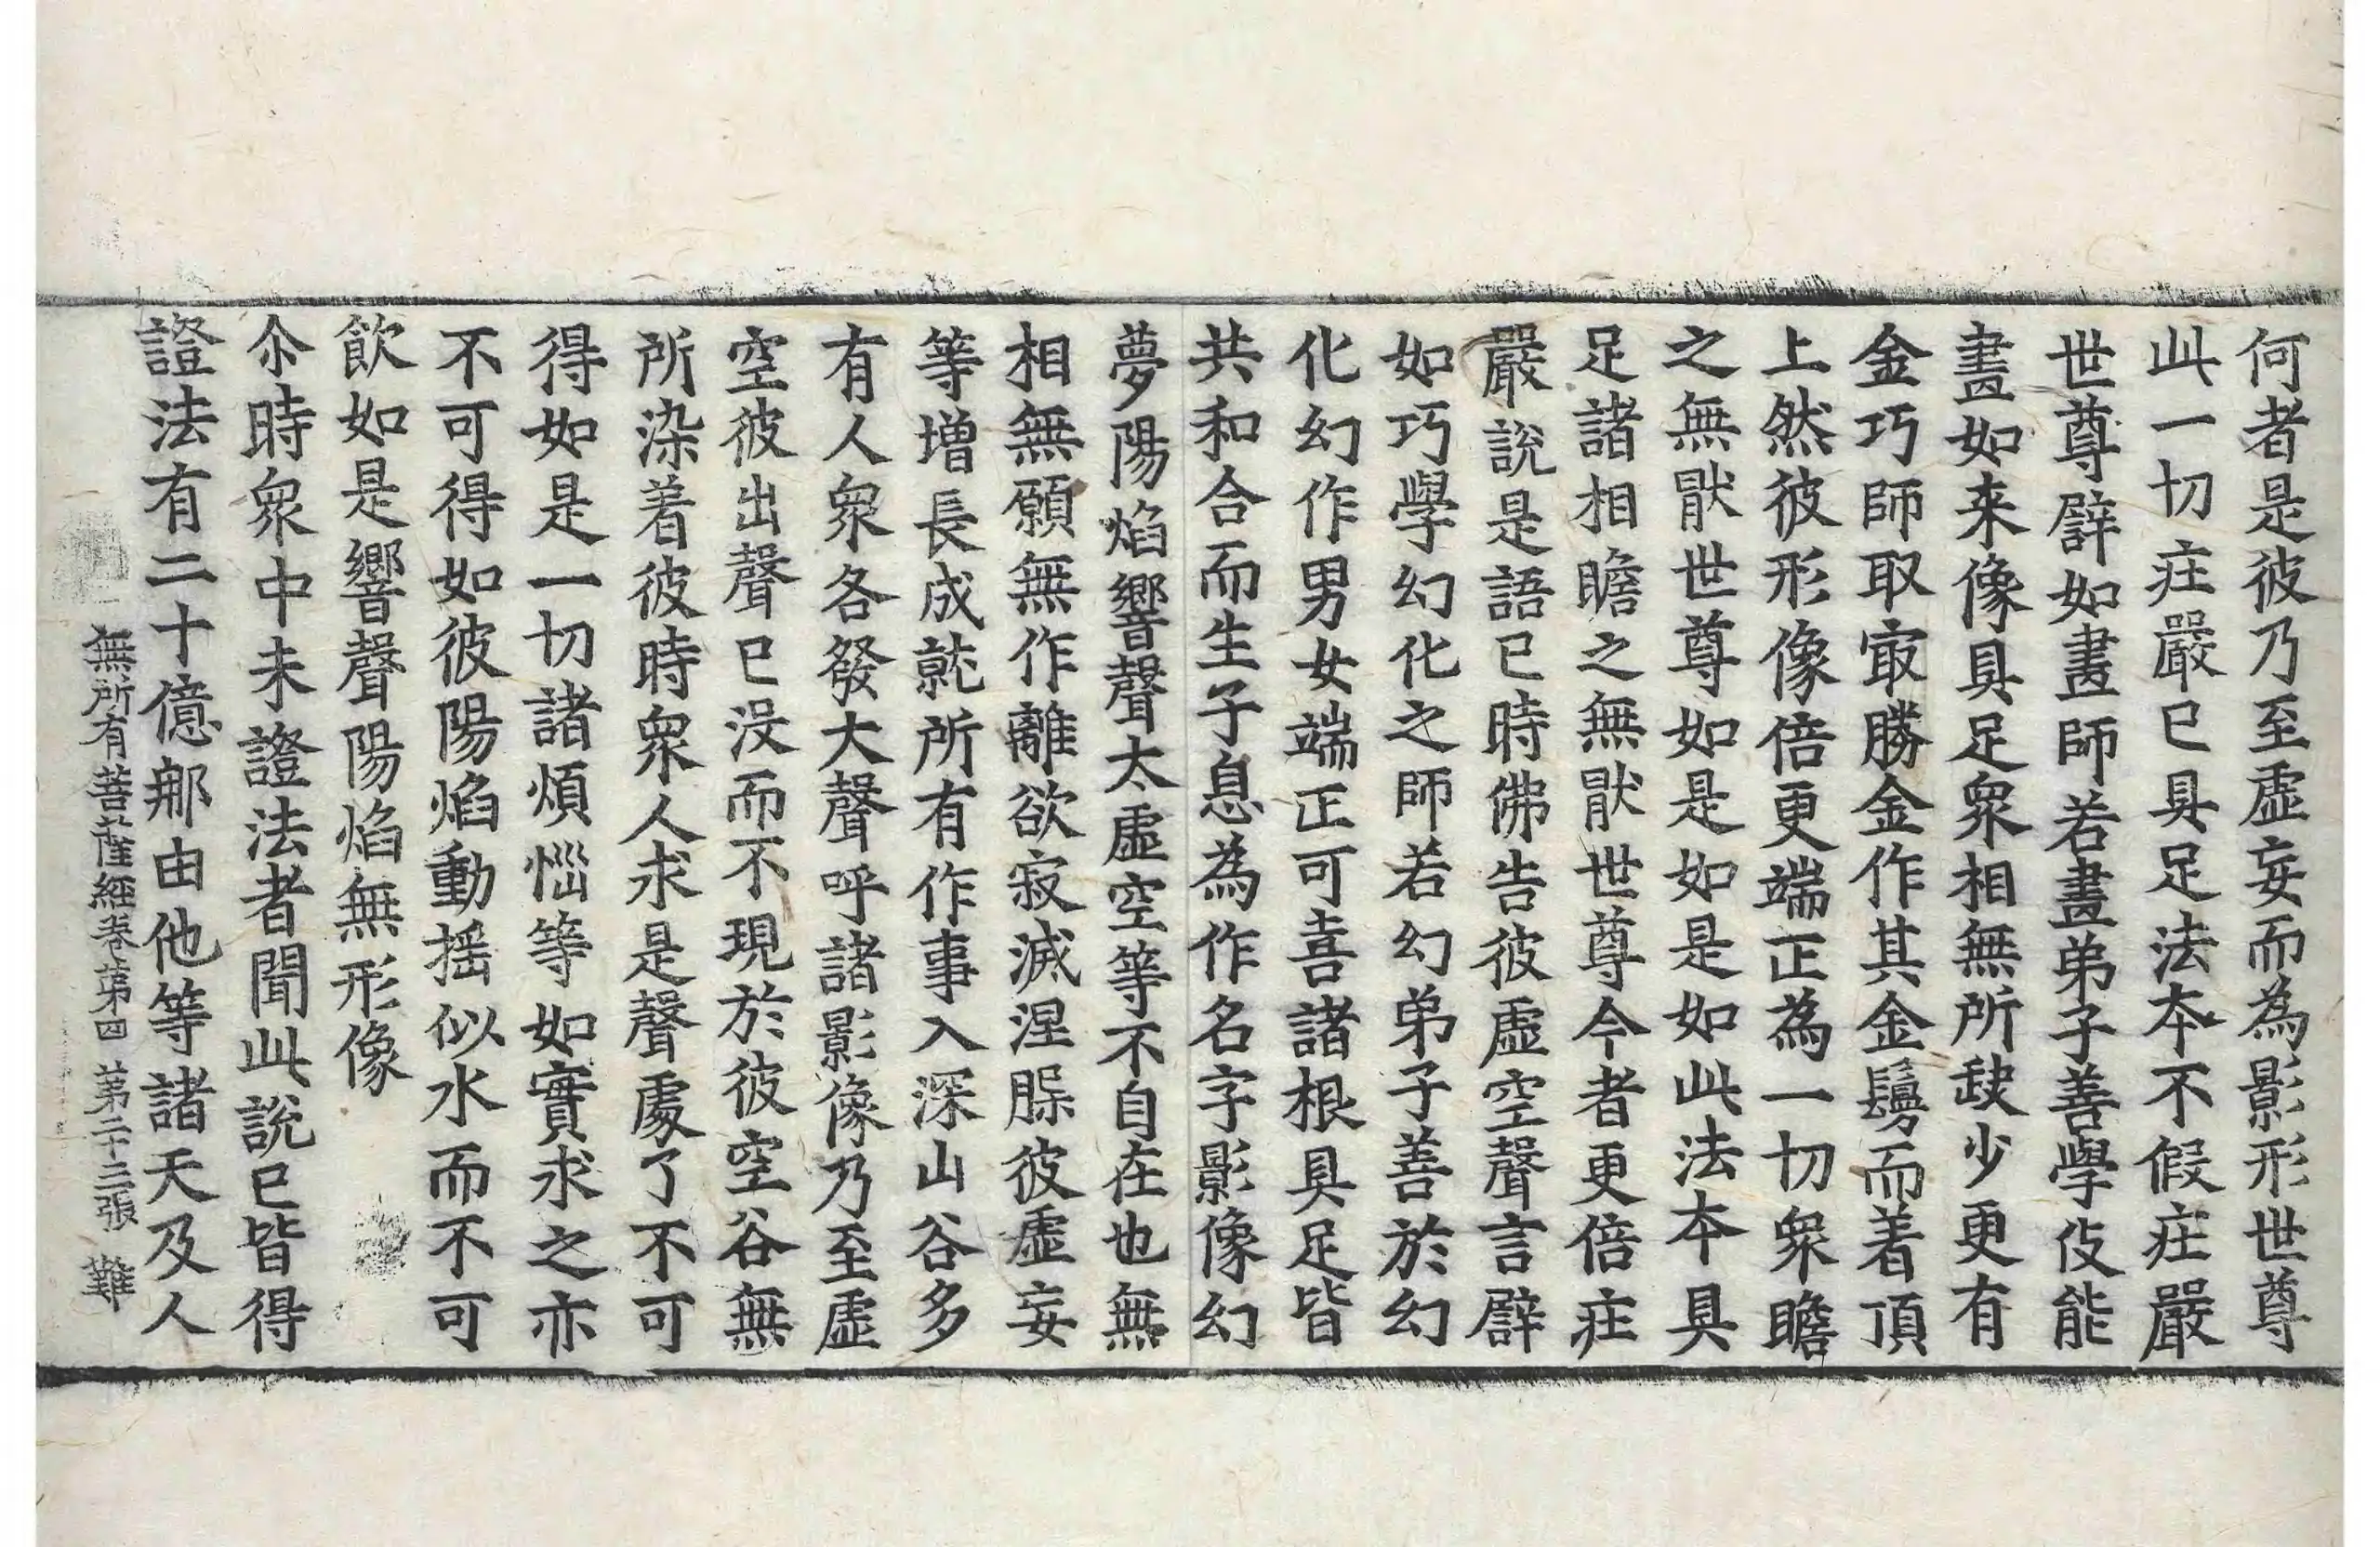 何者是彼乃至虛妄而為影形世尊
此一切疘嚴已具足法本不假疘嚴
世尊辟如畫師若畫弟子善學伎能
畫如来像具足衆相無所𡙇少更有
金巧師取㝡勝金作其金鬘而着頂
上然彼形像倍更端正為一切衆瞻
之無猒世尊如是如是如此法本具
足諸相瞻之無猒世尊今者更倍疘
嚴說是語已時佛告彼虛空聲言辟
如巧學幻化之師若幻弟子善於幻
化幻作男女端正可喜諸根具足皆
共和合而生子息為作名字影像幻
夢陽焰響聲太虛空等不自在也無
相無願無作離欲寂滅涅槃彼虛妄
等增長成就所有作事入深山谷多
有人衆各發大聲呼諸影像乃至虛
空彼出聲已没而不現於彼空谷無
所染着彼時衆人求是聲處了不可
得如是一切諸煩惱等如實求之亦
不可得如彼陽焰動揺似水而不可
飮如是響聲陽焰無形像
尒時衆中未證法者聞此說已皆得
證法有二十億那由他等諸天及人
無所有菩薩經卷第四 第二十三張 難